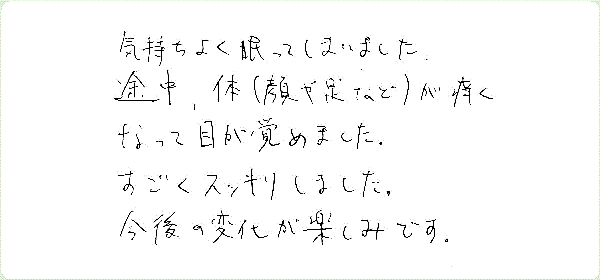 気持ちよく眠ってしまいました。
途中、体(顔や足など)が痒く
なって目が覚めました。
すごくスッキリしました。
今後の変化が楽しみです。